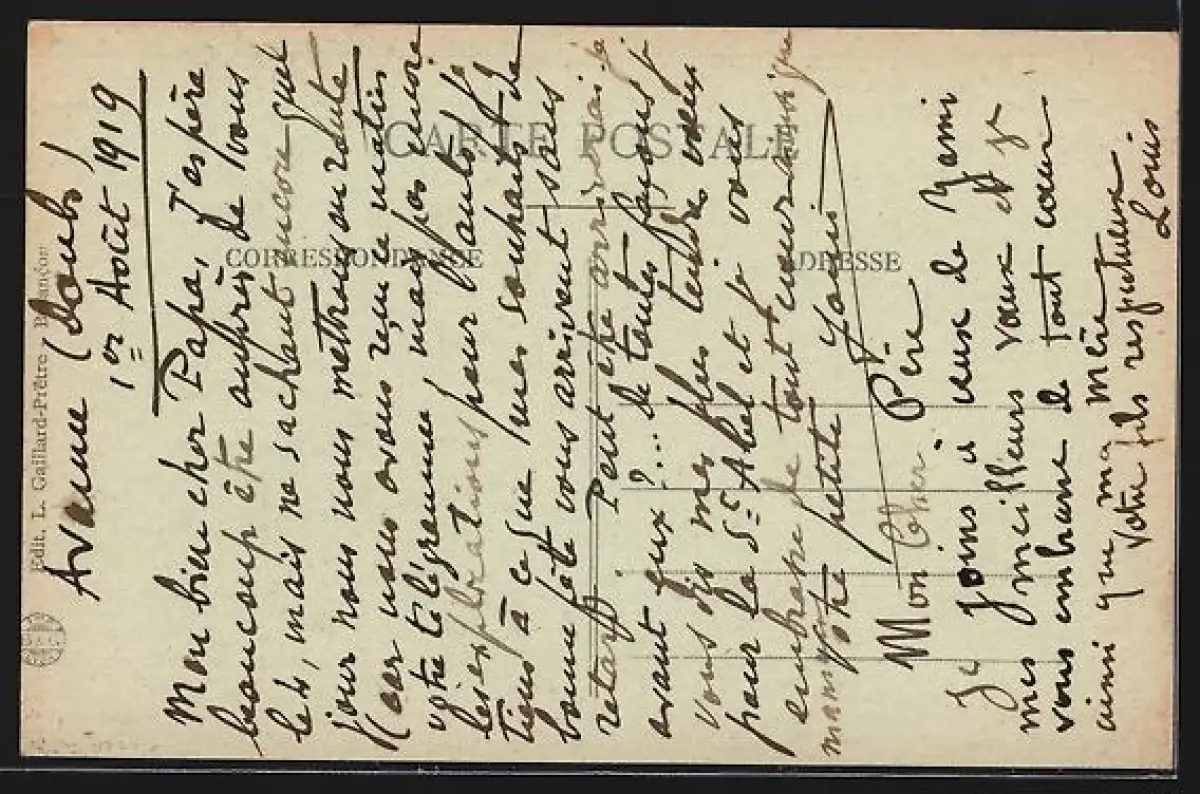 CARTE POSTALE
CORRESPONDANCE
ADRESSE
Edit. L. Gaillard-Prêtre
Avanne (Doubs)
1er Août 1919
Mon bien cher Papa, J'espère
beaucoup être auprès de vous
le , mais ne sachant encore quel
jour nous nous mettrons en route
(car nous avons reçu ce matin
votre télégramme mais pas encore
les explications pour Nantes) je
tiens à ce que mes souhaits de
bonne fête vous arrivent sans
retard. Peut-être arriverai-je
avant eux ?... De toutes façons je
vous dis mes plus tendres vœux
pour la St Abel et je vous
embrasse de tout cœur ainsi que
maman
Votre petite
Mon Cher Père
Je joins à ceux de
mes meilleurs vœux et je
vous embrasse de tout cœur
ainsi que ma Mère
Votre fils respectueux
Louis